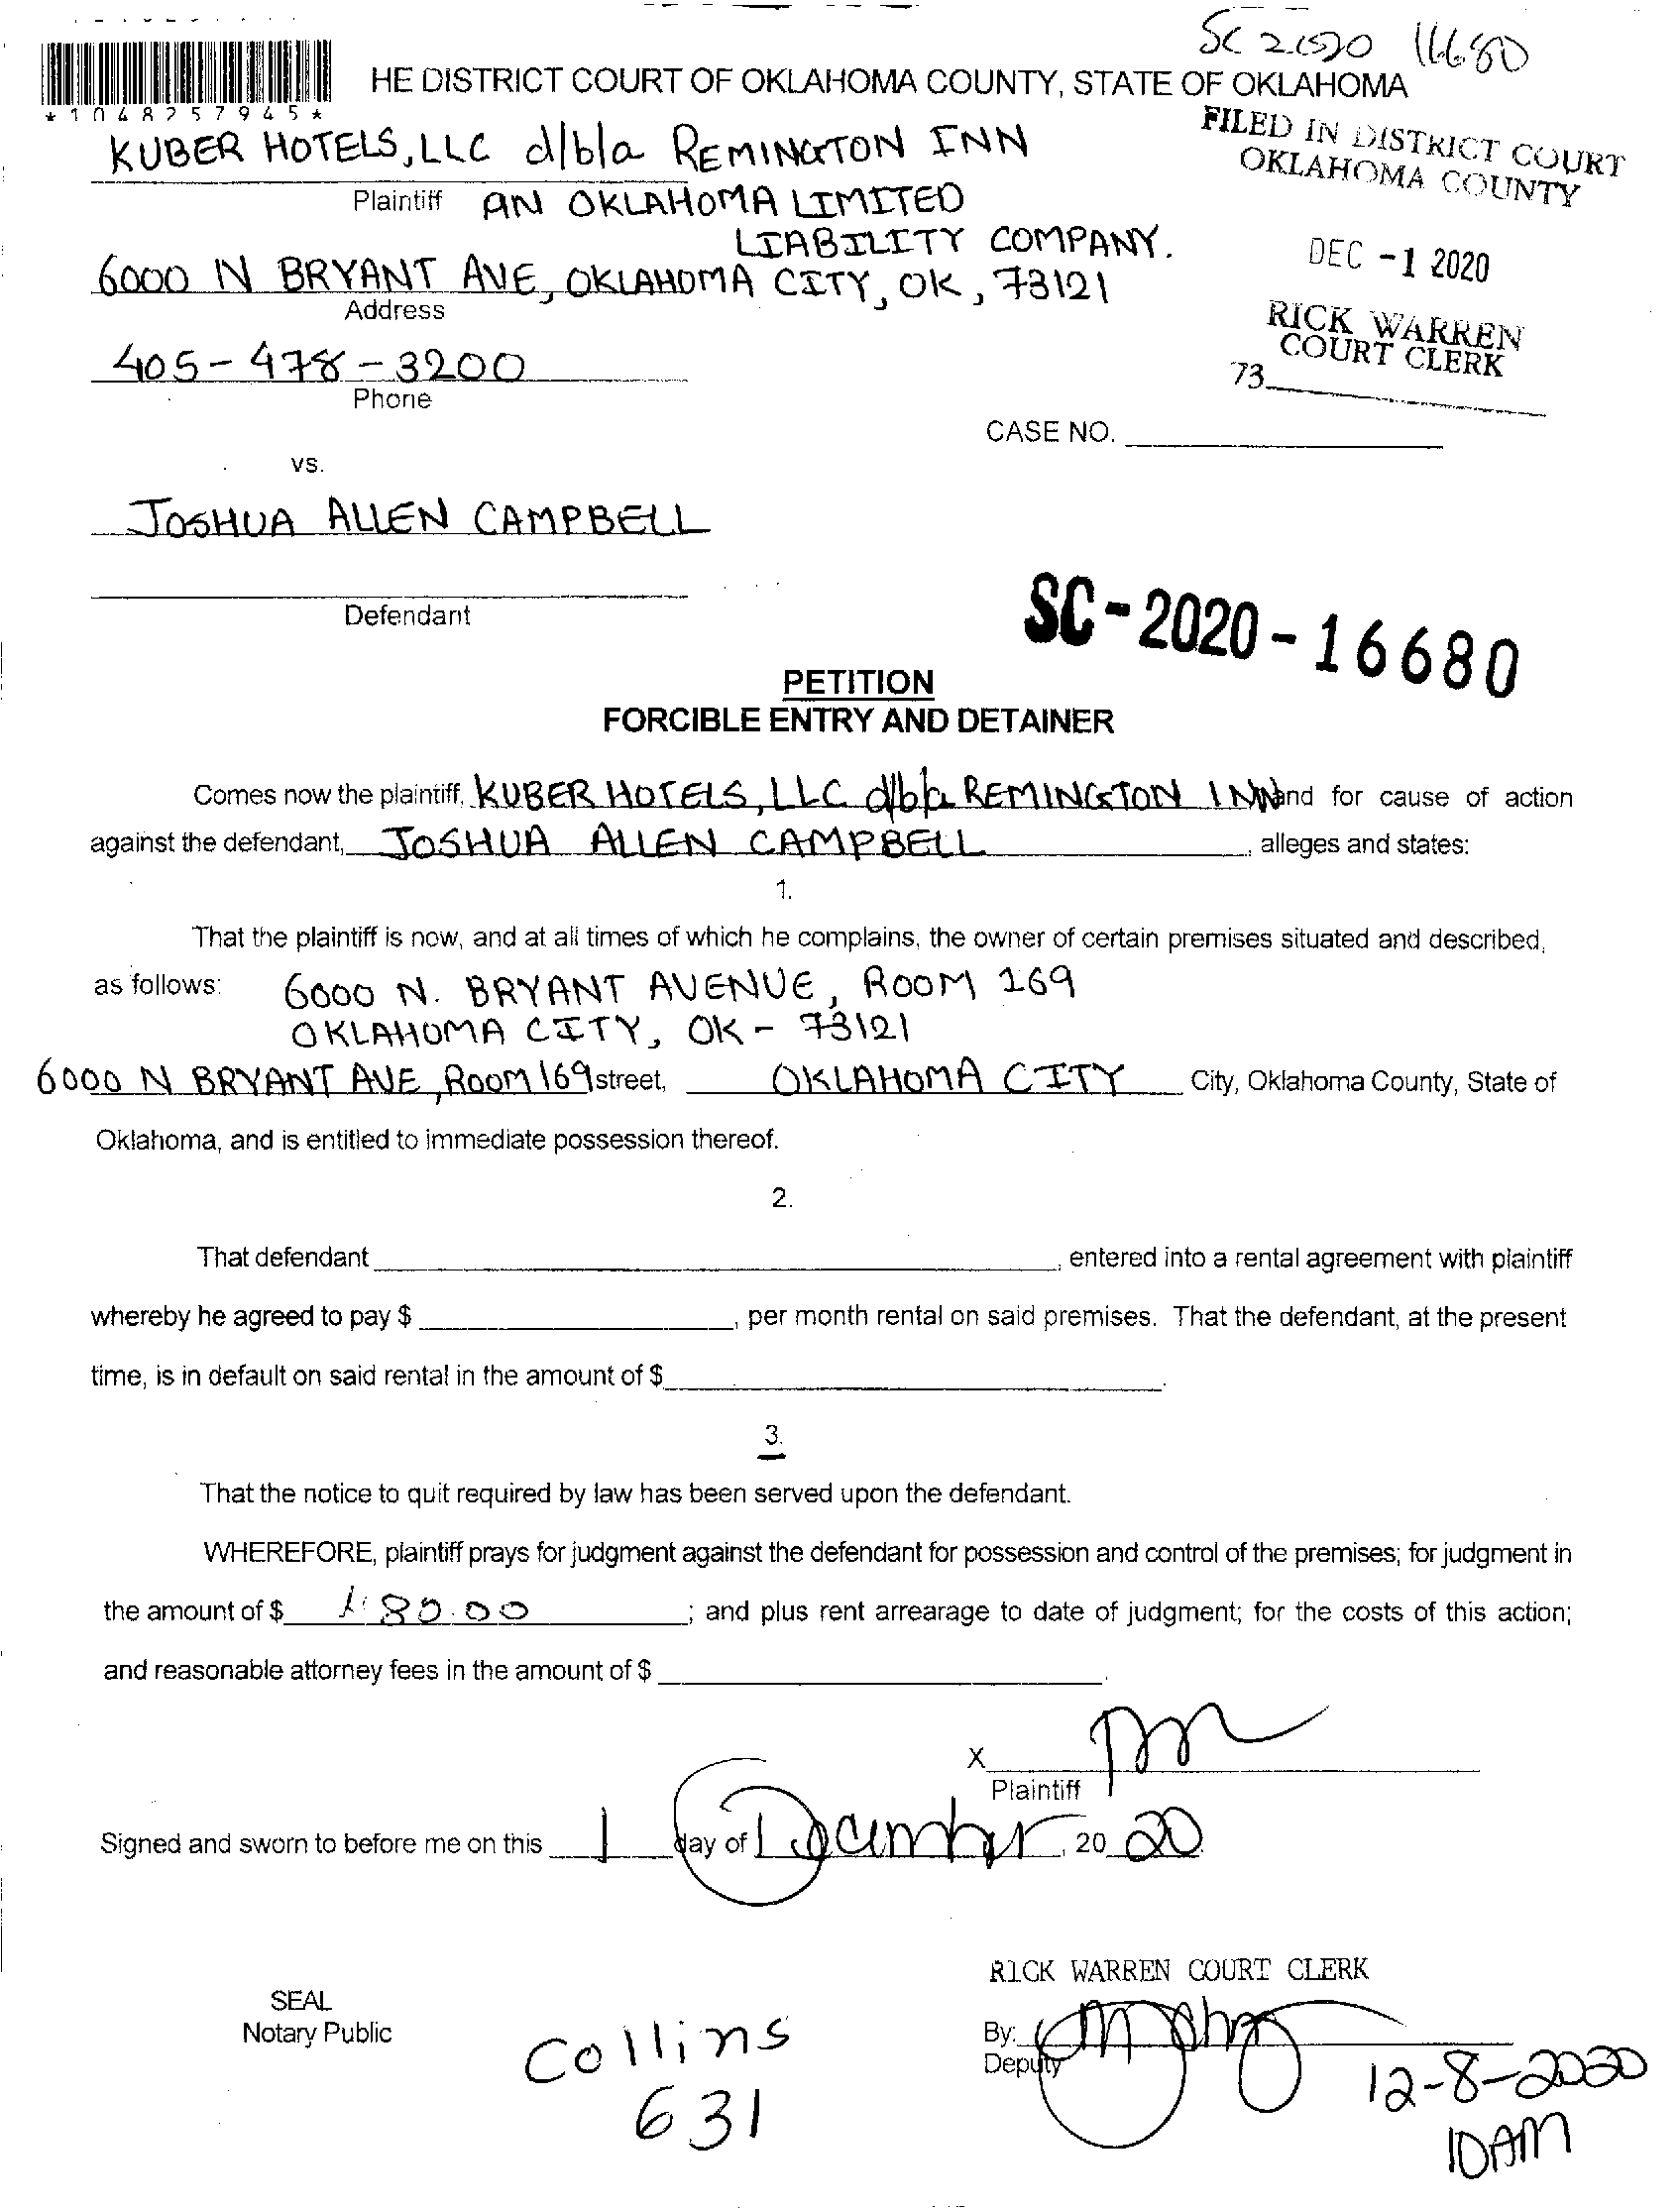 SC 2020 16680
HE DISTRICT COURT OF OKLAHOMA COUNTY, STATE OF OKLAHOMA
*1048257945*
FILED IN DISTRICT COURT
OKLAHOMA COUNTY
KUBER HOTELS, LLC d/b/a REMINGTON INN
Plaintiff AN OKLAHOMA LIMITED
LIABILITY COMPANY.
DEC -1 2020
6000 N BRYANT AVE, OKLAHOMA CITY, OK, 73121
Address
RICK WARREN
COURT CLERK
405-478-3200
73
Phone
CASE NO.
vs.
JOSHUA ALLEN CAMPBELL
Defendant
SC-2020-16680
PETITION
FORCIBLE ENTRY AND DETAINER
Comes now the plaintiff, KUBER HOTELS, LLC d/b/a REMINGTON INN and for cause of action
against the defendant, JOSHUA ALLEN CAMPBELL, alleges and states:
1.
That the plaintiff is now, and at all times of which he complains, the owner of certain premises situated and described,
as follows: 6000 N. BRYANT AVENUE, ROOM 169
OKLAHOMA CITY, OK - 73121
6000 N BRYANT AVE, ROOM 169 street, OKLAHOMA CITY City, Oklahoma County, State of
Oklahoma, and is entitled to immediate possession thereof.
2.
That defendant , entered into a rental agreement with plaintiff
whereby he agreed to pay $ , per month rental on said premises. That the defendant, at the present
time, is in default on said rental in the amount of $ .
3.
That the notice to quit required by law has been served upon the defendant.
WHEREFORE, plaintiff prays for judgment against the defendant for possession and control of the premises; for judgment in
the amount of $ 180.00 ; and plus rent arrearage to date of judgment; for the costs of this action;
and reasonable attorney fees in the amount of $ .
X
Plaintiff
Signed and sworn to before me on this 1 day of December, 20 20.
RICK WARREN COURT CLERK
SEAL
Notary Public
By:
Deputy
Collins
631
12-8-2020
10AM